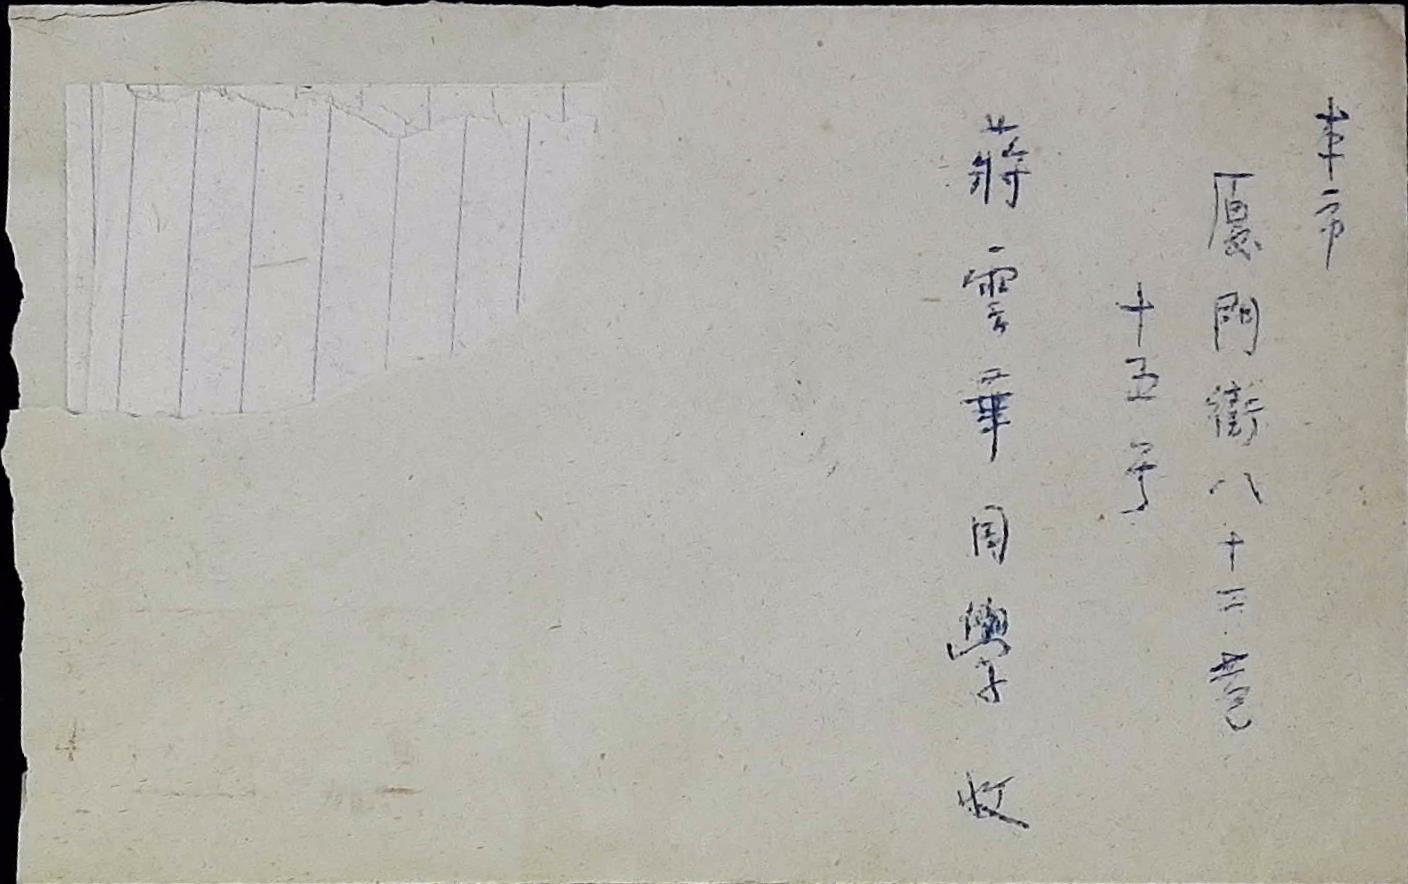 本市
厦門街八十三巷
十五号
蔣雲華同學 收